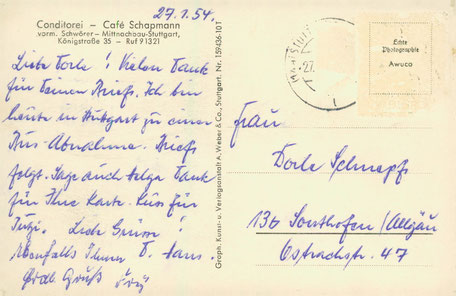 27.1.54.
Conditorei – Café Schapmann
vorm. Schwörer – Mittnachbau-Stuttgart,
Königstraße 35 – Ruf 91321
Liebe Dorle! Vielen Dank
für Deinen Brief. Ich bin
heute in Stuttgart zu einer
Bus-Abnahme. Brief
folgt. Sage auch Helga Dank
für Ihre Karte. Kuss für
Liebe Grüsse!
Ebenfalls Ihnen
Gruß
Graph. Kunst- u. Verlagsanstalt A. Weber & Co., Stuttgart. Nr. 159436-10 T
27.
Echte
Photographie
Awuco
Frau
Dorle Schnapf
13b Sonthofen/Allgäu
Ostrachstr. 47